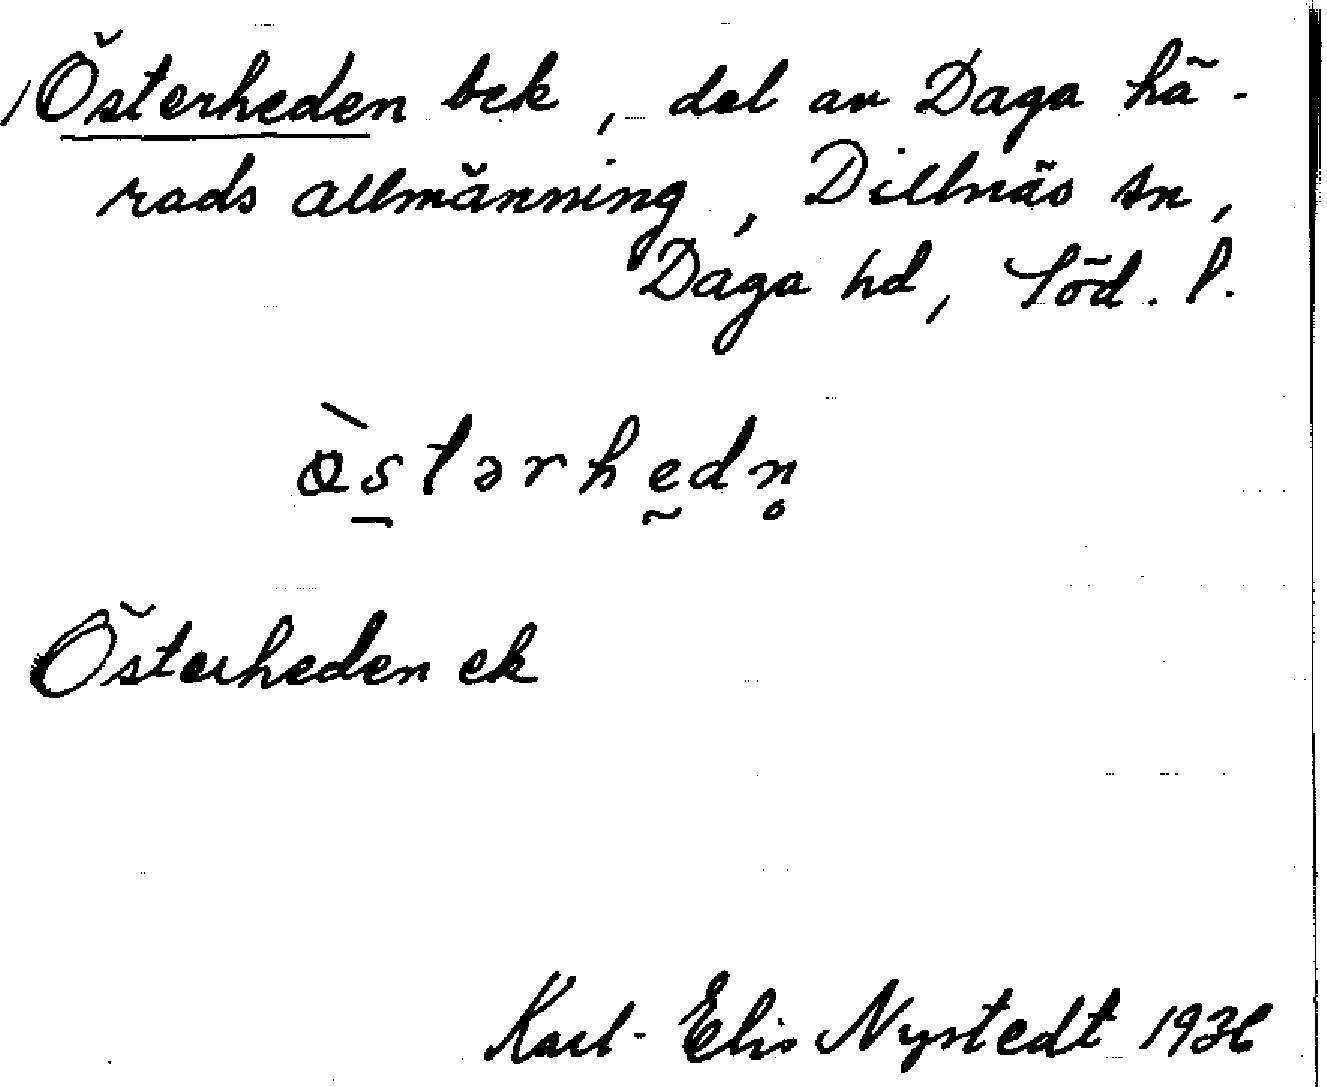 Österheden bek, del av Daga hä-
rads allmänning, Dillnäs sn,
Daga hd, Söd. l.
ö̀stərhedn̥
Österheden ek
Karl-Elis Nystedt 1936